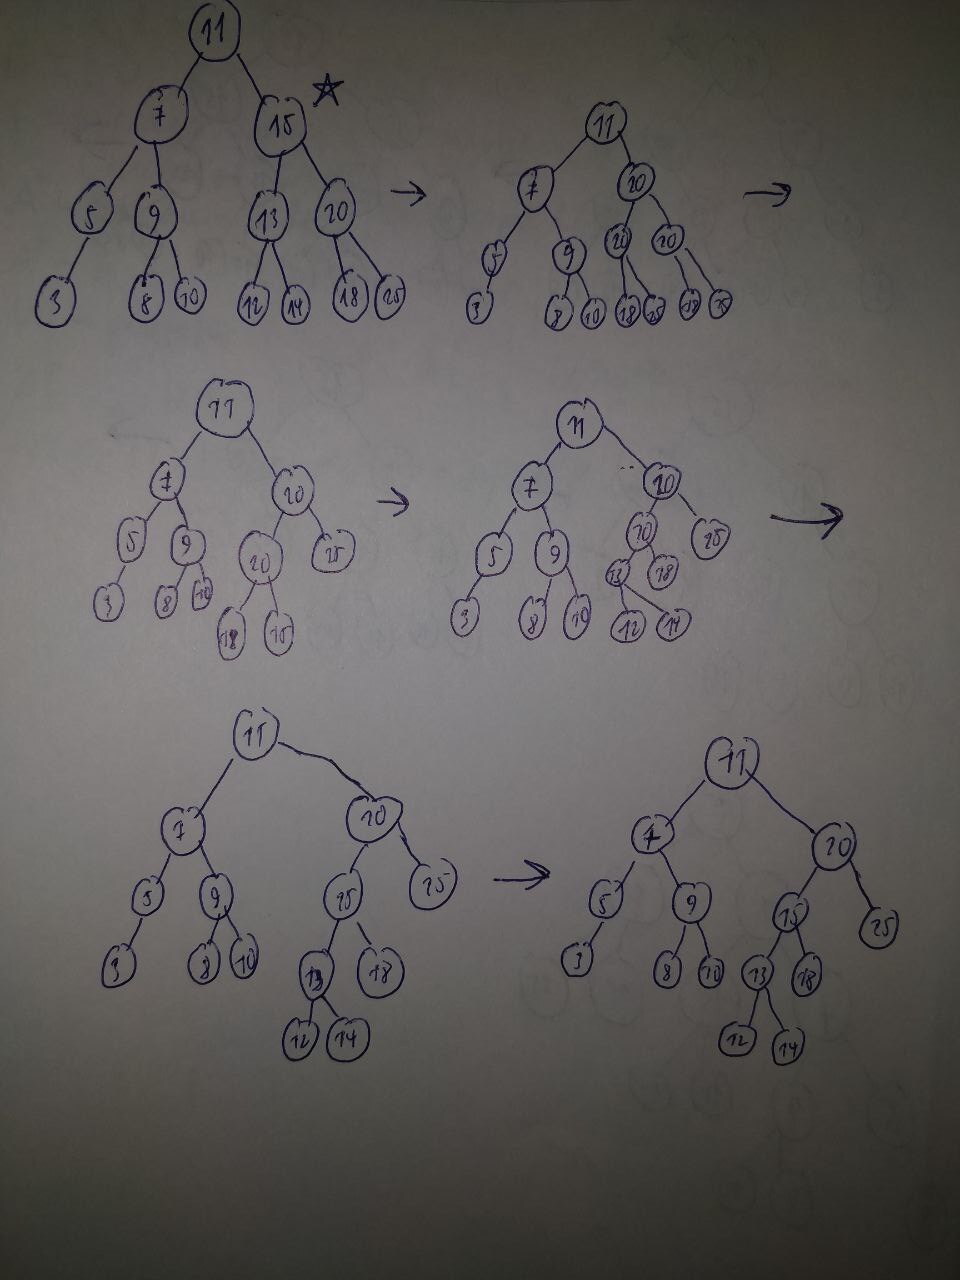 11
7 15 ☆
5 9 13 20 →
3 8 10 12 14 18 25
11
7 20 →
5 9 20 20
3 8 10 18 25 18 25
11
7 20 →
5 9 20 25
3 8 10
18
11
7 20
5 9 20 25 →
3 8 10 13 18
12 14
11
7 20
5 9 15 25 →
3 8 10 13 18
12 14
11
7 20
5 9 15 25
3 8 10 13 18
12 14